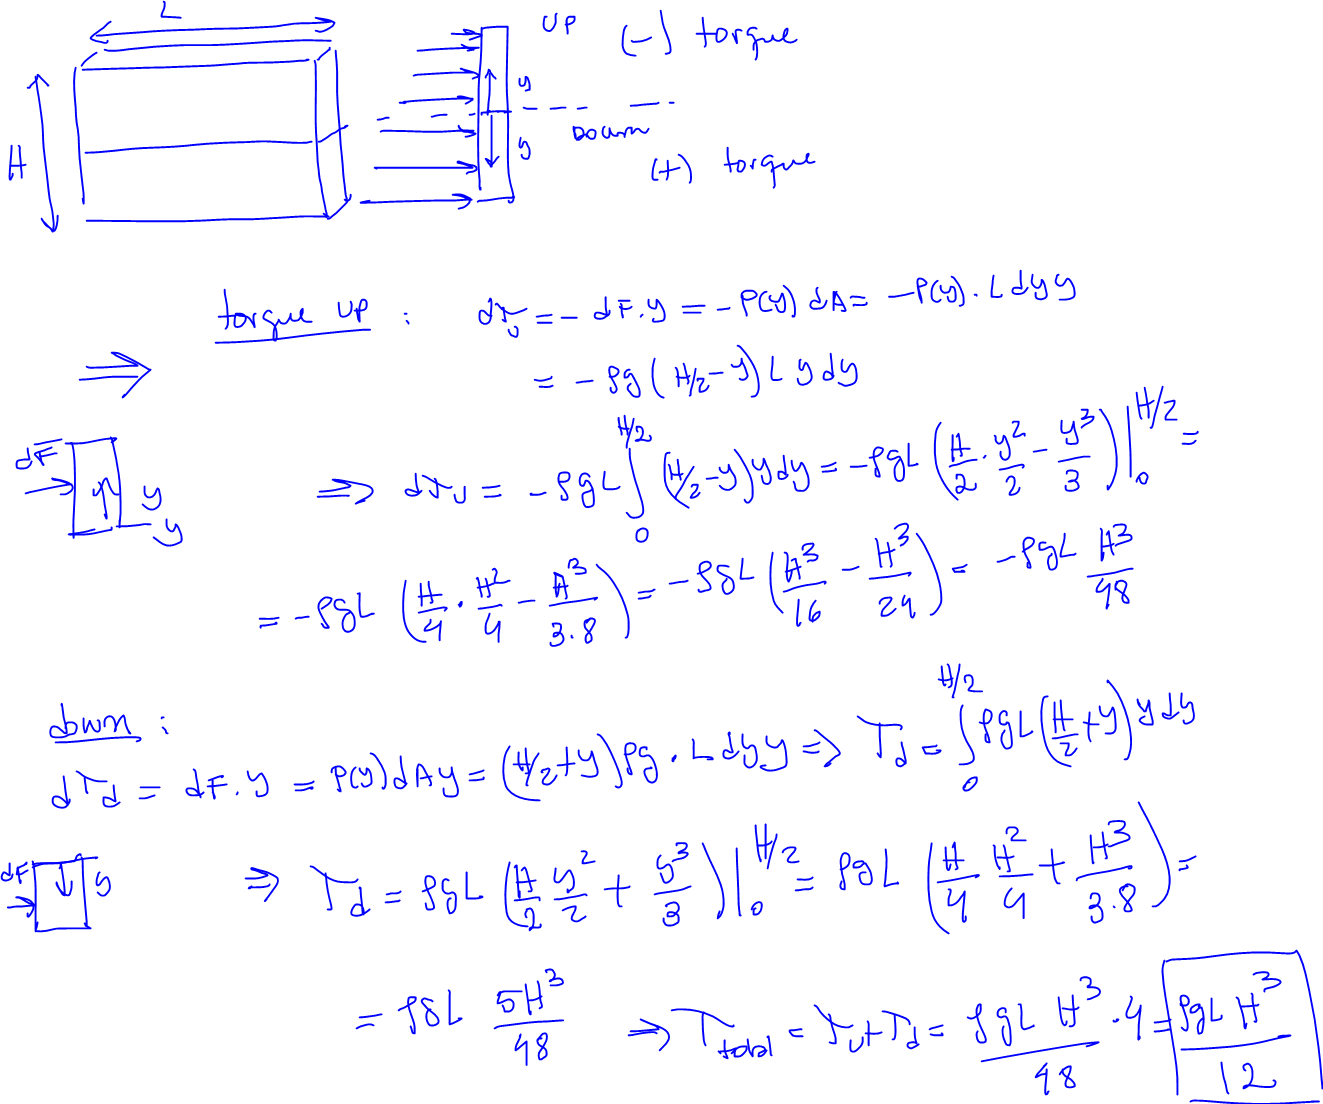 L
UP (-) torque
H
y
Down
y
(+) torque
torque UP : dτ_u = - dF.y = - P(y) dA = -P(y). L dy y
⇒ = - ρg ( H/2 - y) L y dy
dF y y
⇒ dτ_u = - ρgL ∫_0^{H/2} (H/2 - y) y dy = -ρgL (H/2 . y²/2 - y³/3) |_0^{H/2} =
= - ρgL (H/4 . H²/4 - H³/3.8) = - ρgL (H³/16 - H³/24) = - ρgL H³/48
down :
dτ_d = dF.y = P(y) dA y = (H/2 + y) ρg . L dy y ⇒ τ_d = ∫_0^{H/2} ρgL (H/2 + y) y dy
dF y
⇒ τ_d = ρgL (H/2 y²/2 + y³/3) |_0^{H/2} = ρgL (H/4 H²/4 + H³/3.8) =
= ρgL 5H³/48 ⇒ τ_total = τ_u + τ_d = ρgL H³/48 . 4 = ρgL H³/12